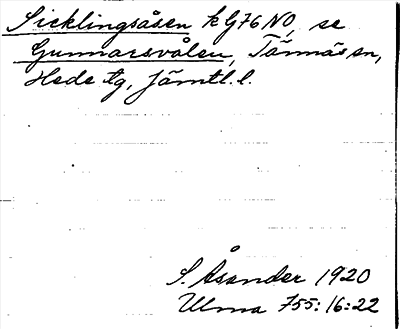 Sicklingsåsen k G76 NO, se
Gunnarsvålen, Tännäs sn,
Hede tg, Jämtl. l.
S. Åsander 1920
Ulma 755:16:22